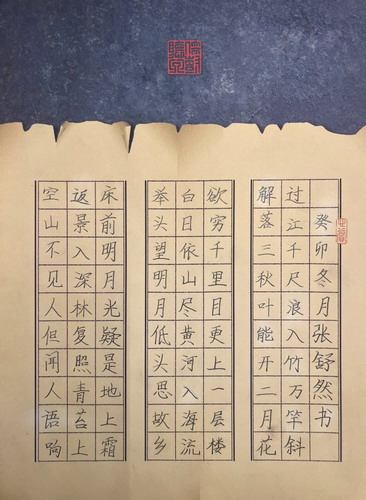 空山不见人但闻人语响
返景入深林复照青苔上
床前明月光疑是地上霜
举头望明月低头思故乡
白日依山尽黄河入海流
欲穷千里目更上一层楼
解落三秋叶能开二月花
过江千尺浪入竹万竿斜
癸卯冬月张舒然书